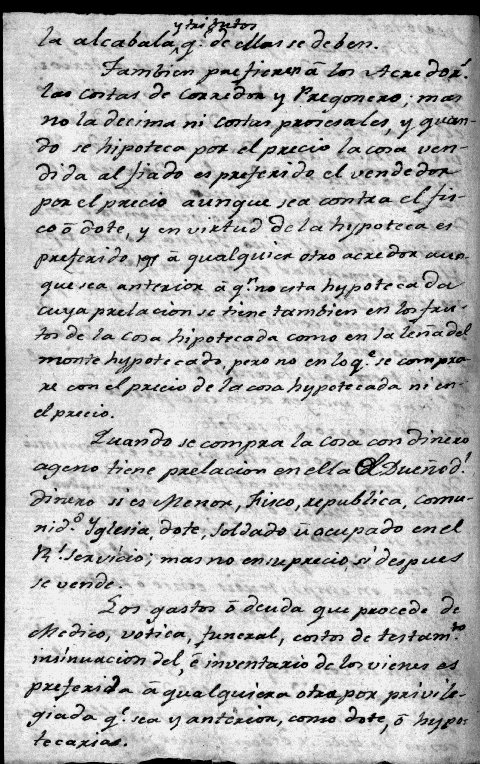 y tributos
la alcabala, q.e de ellas se deben.
Tambien prefieren â los Acredor.s
las costas de Corredor y Pregonero; mas
no la decima ni costas procesales, y quan-
do se hipoteca por el precio la cosa ven-
dida al fiado es preferido el vendedor
por el precio aunque sea contra el fis-
co ô dote, y en virtud de la hypoteca es
preferido â qualquier otro acredor aun-
que sea anterior â q.n no esta hypotecada
cuya prelacion se tiene tambien en los fru-
tos de la cosa hipotecada como en la leña del
monte hypotecado, pero no en lo q.e se compra-
re con el precio de la cosa hypotecada ni en
el precio.
Quando se compra la cosa con dinero
ageno tiene prelacion en ella el Dueño d.l
dinero si es Menor, Fisco, republica, comu-
nid.d Yglesia, dote, soldado û ocupado en el
R.l servicio; mas no en su precio, si despues
se vende.
Los gastos ô deuda que procede de
Medico, votica, funeral, costos de testam.to
insinuacion del, ê inventario de los vienes es
preferida â qualquiera otra por privile-
giada q.e sea y anterior, como dote, ô hypo-
tecarias.